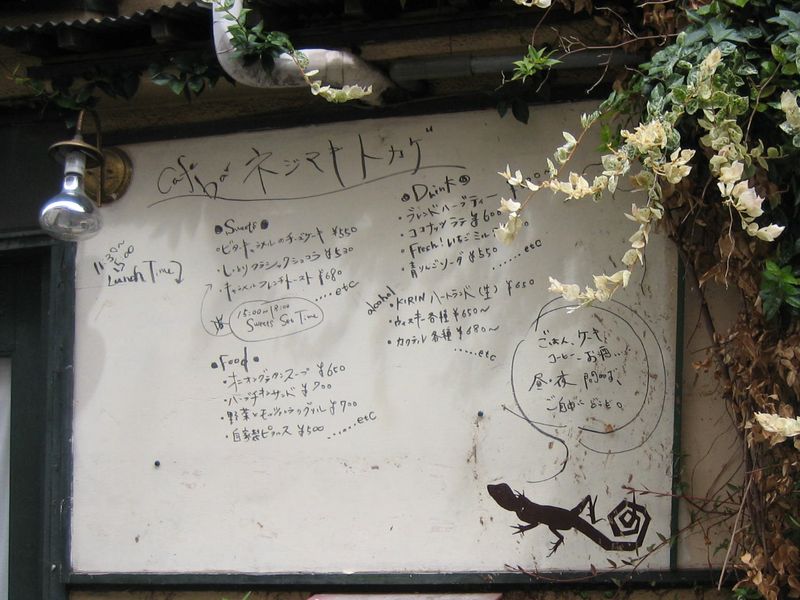 Cafe bar ネジマキトカゲ
11:30〜15:00
Lunch Time
●Sweets●
・ビターキャラメルのチーズケーキ ¥550
・しっとりクラシックショコラ ¥530
・キャラメルフレンチトースト ¥680
……etc
15:00〜18:00
Sweets Set Time
●Food●
・オニオングラタンスープ ¥650
・ハーブチキンサンド ¥700
・野菜とモッツァレラのグリル ¥700
・自家製ピクルス ¥500
……etc
●Drink●
・ブレンドハーブティー
・ココナッツラテ ¥600
・Fresh!いちごミルク
・青りんごソーダ ¥550
……etc
alcohol
・KIRIN ハートランド(生) ¥650
・ウィスキー各種 ¥650〜
・カクテル各種 ¥680〜
……etc
ごはん、ケーキ
コーヒー、お酒…
昼・夜 問わず、
ご自由にどうぞ。